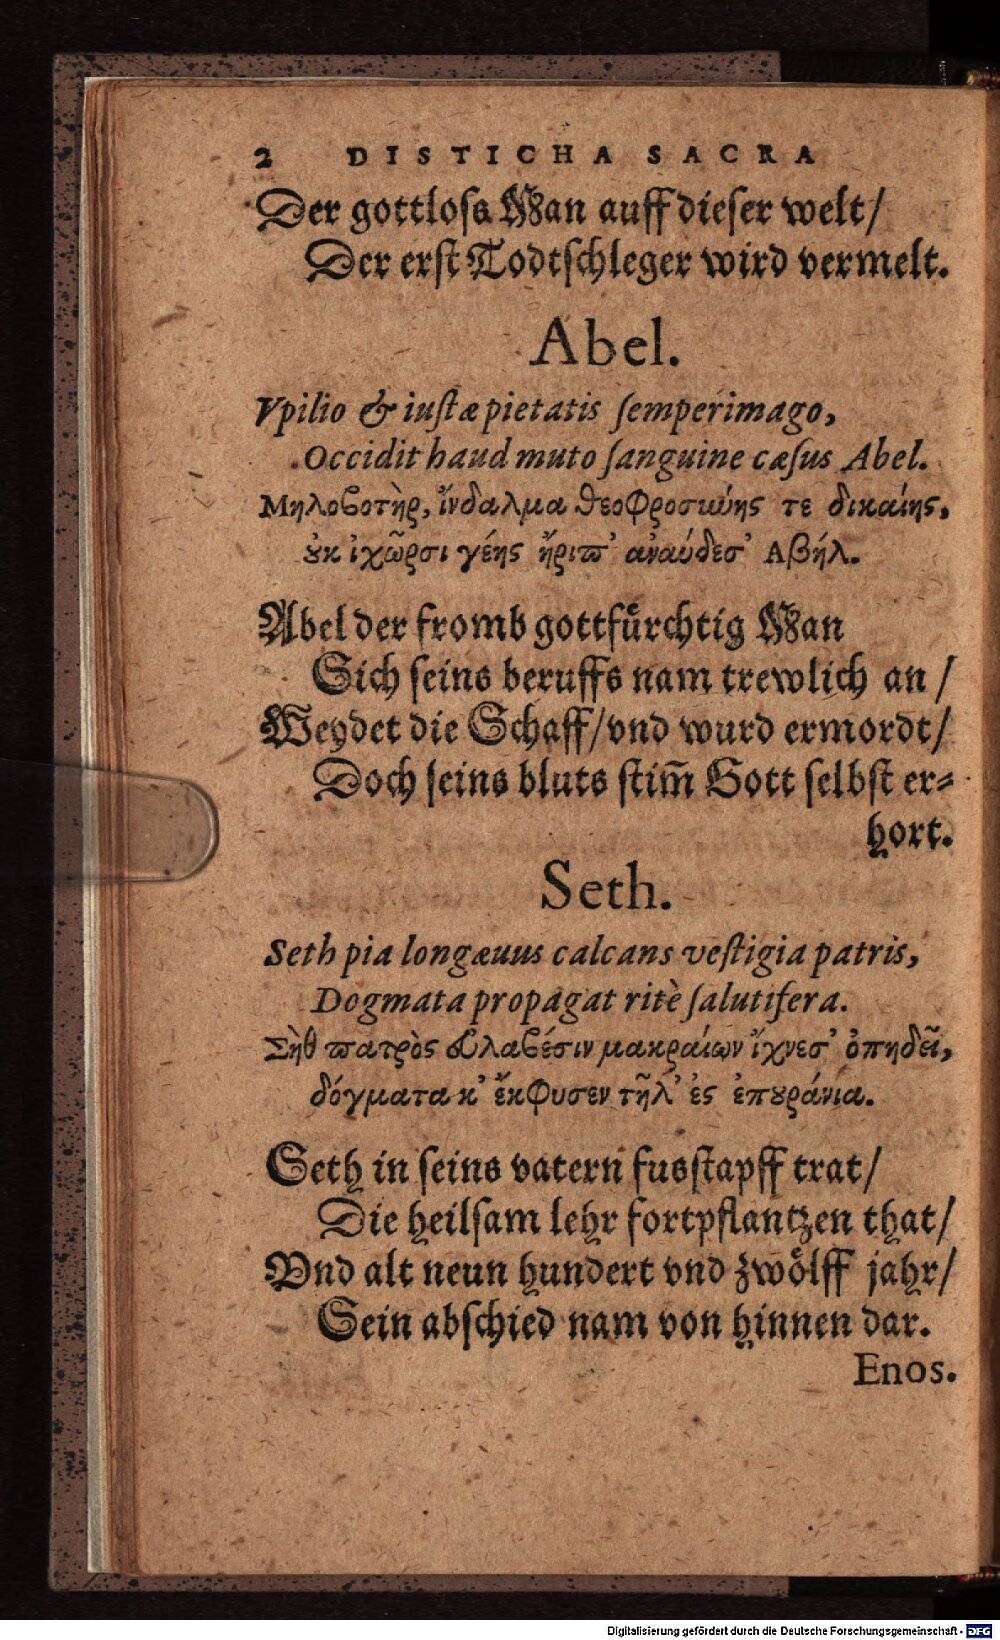 2 DISTICHA SACRA
Der gottloſs Man auff dieſer welt/
Der erſt Todtſchleger wird vermelt.
Abel.
Vpilio & iuſtæ pietatis ſemper imago,
Occidit haud muto ſanguine cæſus Abel.
Μηλοβοτὴρ, ἴνδαλμα θεοφροσύνης τε δικαίης,
οὐκ ἰχῶρσι γέης ἤριπ' ἀναύδεσ' Αβήλ.
Abel der fromb gottfuͤrchtig Man
Sich ſeins beruffs nam trewlich an /
Weydet die Schaff/ vnd wurd ermordt/
Doch ſeins bluts ſtim̃ Gott ſelbſt er⸗
hort.
Seth.
Seth pia longæuus calcans veſtigia patris,
Dogmata propagat ritè ſalutifera.
Σὴθ πατρὸς εὐλαβέσιν μακραίων ἴχνεσ' ὀπηδεῖ,
δόγματα κ' ἔκφυσεν τῆλ' ἐς ἐπουράνια.
Seth in ſeins vatern fusſtapff trat/
Die heilſam lehr fortpflantzen that/
Vnd alt neun hundert vnd zwoͤlff jahr/
Sein abſchied nam von hinnen dar.
Enos.
Digitalisierung gefördert durch die Deutsche Forschungsgemeinschaft - DFG